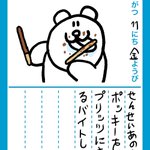 がつ11にち金ようび
せんせいあの
ポッキーを
プリッツにす
るバイトし